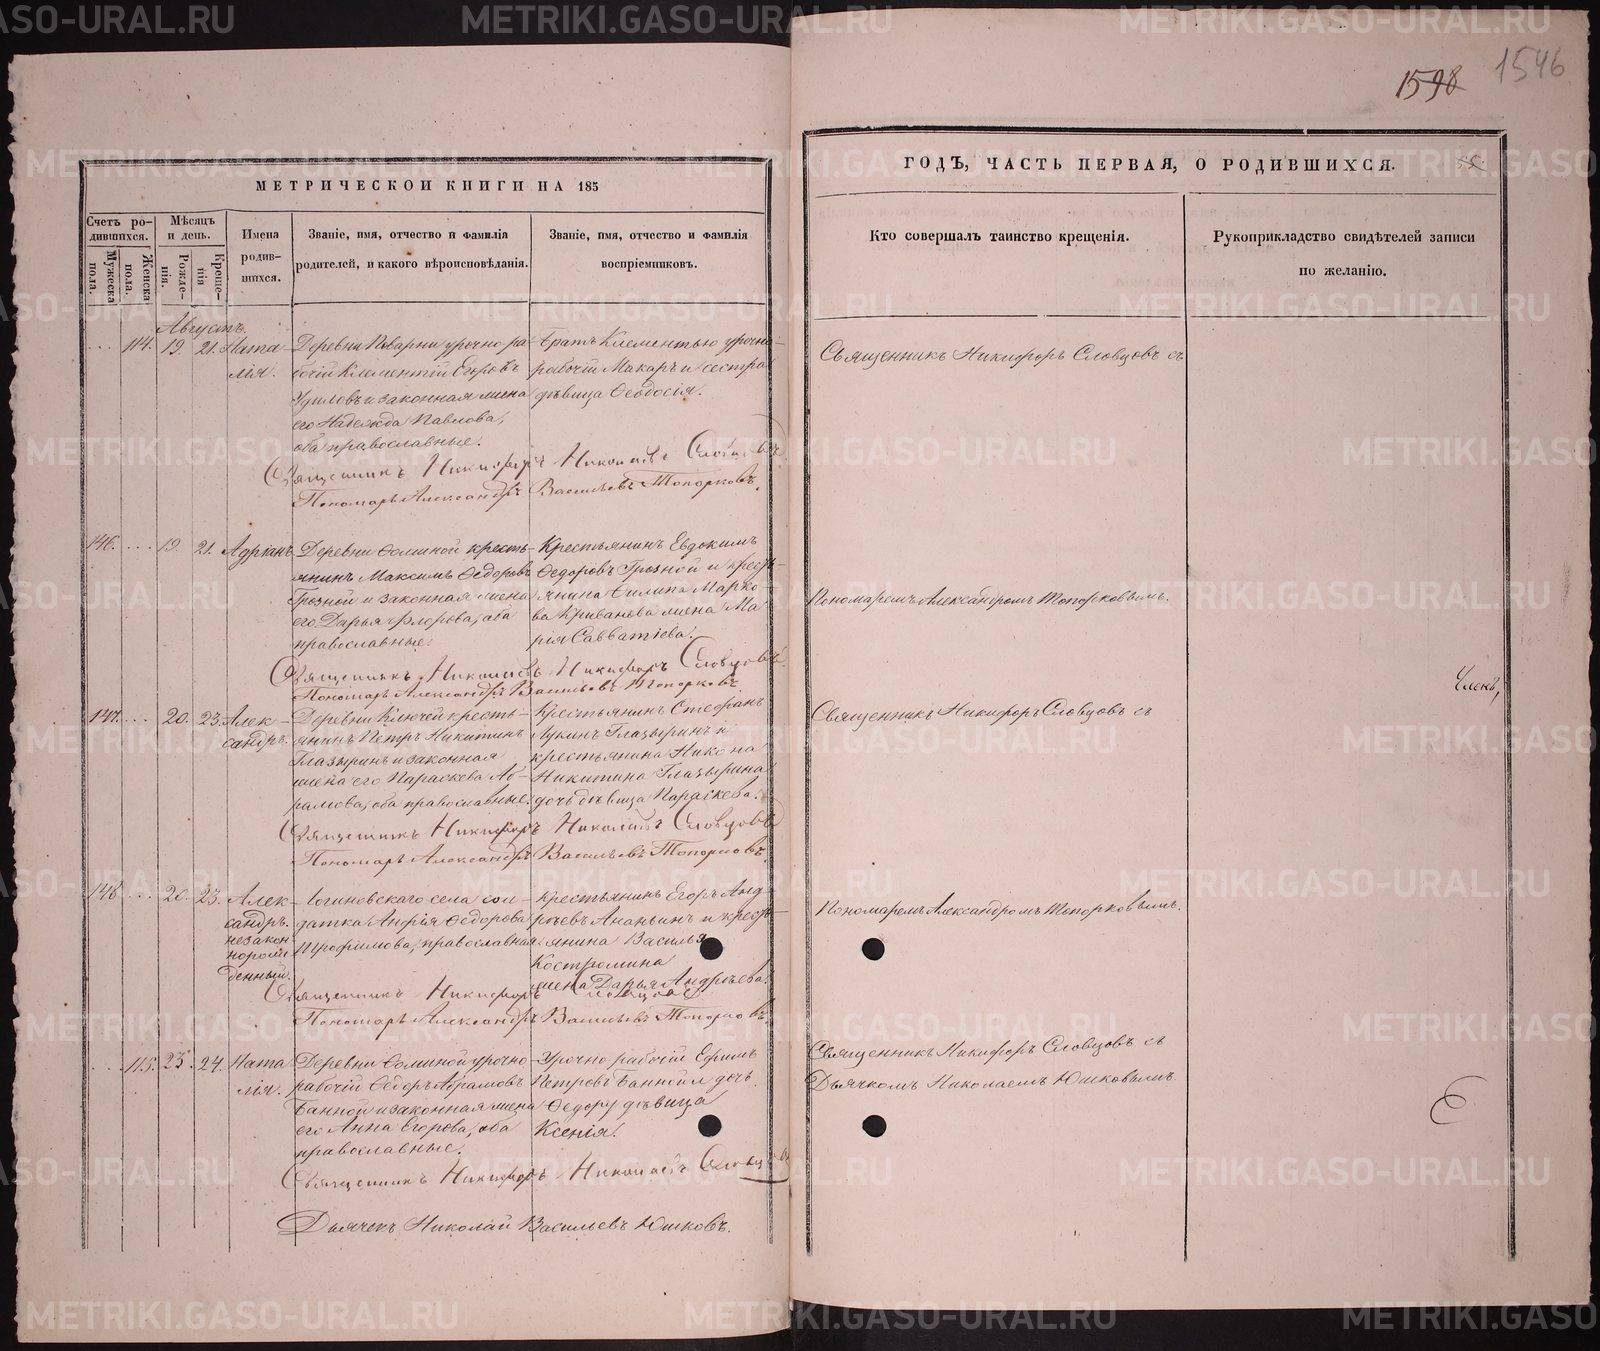 1598 1546
МЕТРИЧЕСКОЙ КНИГИ НА 185
ГОДЪ, ЧАСТЬ ПЕРВАЯ, О РОДИВШИХСЯ.
Счетъ ро-
дившихся.
Мужеска пола.
Женска пола.
Мѣсяцъ
и день.
Рожде-
нія.
Креще-
нія
Имена
родив-
шихся.
Званіе, имя, отчество и фамилія
родителей, и какого вѣроисповѣданія.
Званіе, имя, отчество и фамилія
воспріемниковъ.
Кто совершалъ таинство крещенія.
Рукоприкладство свидѣтелей записи
по желанію.
Августъ.
114. 19. 21. Ната-
лія.
Деревни Поварни урочно ра-
бочій Клементій Егоровъ
Удиловъ и законная жена
его Надежда Павлова,
оба православные.
Братъ Клементью урочно-
рабочій Макаръ и сестра
дѣвица Ѳеодосія.
Священникъ Никифоръ Словцовъ съ
Священникъ Никифоръ Николаевъ Словцовъ
Пономарь Александръ Васильевъ Топорковъ.
146. 19. 21. Адріанъ
Деревни Ѳоминой кресть-
янинъ Максимъ Ѳедоровъ
Грозной и законная жена
его Дарья Флорова, оба
православные.
Крестьянинъ Евдокимъ
Ѳедоровъ Грозной и крест-
янина Филипа Марко-
ва Криванова жена Ма-
рія Савватіева.
Пономаремъ Александромъ Топорковымъ.
Священникъ Николаевъ Никифоръ Словцовъ
Пономарь Александръ Васильевъ Топорковъ.
Членъ,
147. 20. 23. Алек-
сандръ.
Деревни Ключей кресть-
янинъ Петръ Никитинъ
Глазыринъ и законная
жена его Параскева Аб-
рамова, оба православные.
Крестьянинъ Стефанъ
Лукинъ Глазыринъ и
крестьянина Никона
Никитина Глазырина
дочь дѣвица Параскева.
Священникъ Никифоръ Словцовъ съ
Священникъ Никифоръ Николаевъ Словцовъ
Пономарь Александръ Васильевъ Топорковъ
148. 20. 23. Алек-
сандръ.
незакон
норож
денный.
Логиновскаго села сол-
датка Ѳедорова
Трофимова, православная.
Крестьянинъ Егоръ Анд-
реевъ Ананьинъ и крест-
янина Василья
Костромина
жена Дарья Андреева.
Пономаремъ Александромъ Топорковымъ.
Священникъ Никифоръ Словцовъ
Пономарь Александръ Васильевъ Топорковъ.
115. 23. 24. Ната
лія.
Деревни Ѳоминой урочно-
рабочій Ѳедоръ Абрамовъ
Банной и законная жена
его Анна Егорова, оба
православные.
Урочно рабочій Ефимъ
Петровъ Банной и дочь
Ѳедору дѣвица
Ксенія.
Священникъ Никифоръ Словцовъ съ
Дьячкомъ Николаемъ Юшковымъ
Священникъ Никифоръ Николаевъ Словцовъ
Дьячекъ Николай Васильевъ Юшковъ.
METRIKI.GASO-URAL.RU